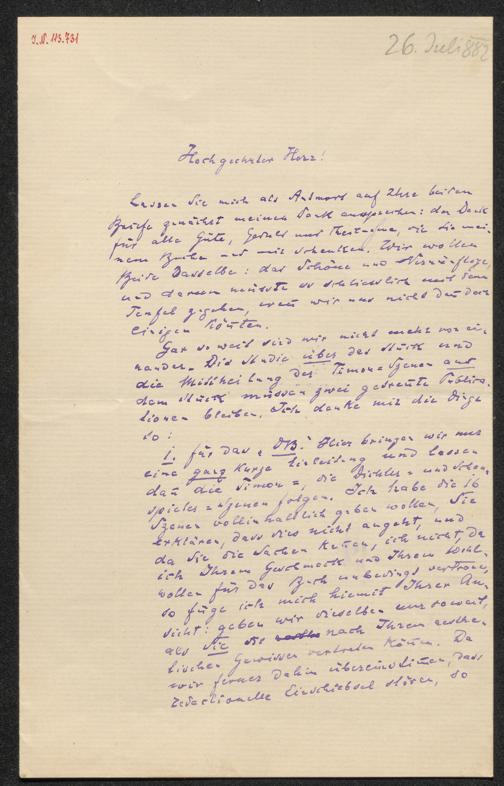 J.N. 115.731
26. Juli 882
Hochgeehrter Herr!
Lassen Sie mich als Antwort auf Ihre beiden
Briefe zunächst meinen Dank aussprechen: den Dank
für alle Güte, Geduld und Theilnahme, die Sie mei-
nem Buche und mir schenken. Wir wollen
Beide Dasselbe: das Schöne und Vernünftige,
und darum müsste es schliesslich mit dem
Teufel zugehen, wenn wir uns nicht darüber
einigen könnten.
Gar so weit sind wir nicht mehr von ein-
ander. Die Studie über das Stück und
die Mittheilung der Timon=Szenen aus
dem Stück müssen zwei getrennte Publica-
tionen bleiben. Ich denke mir die Dinge
so:
1. für das "DB." Hier bringen wir nur
eine ganz kurze Einleitung und lassen
dann die Timon=, die Dichter= und Schau-
spieler=Szenen folgen. Ich habe die 16
Szenen vollinhaltlich geben wollen, Sie
erklären, dass dies nicht angeht, und
da Sie die Sachen kennen, ich nicht, da
ich Ihrem Geschmack und Ihrem Wohl-
wollen für das Buch unbedingt vertraue,
so füge ich mich hiemit Ihrer An-
sicht: geben wir dieselben nur soweit,
als Sie sie nach Ihrem aesthe-
tischen Gewissen vertreten können. Da
wir ferner dahin übereinstimmen, dass
redactionelle Einschiebsel stören, so